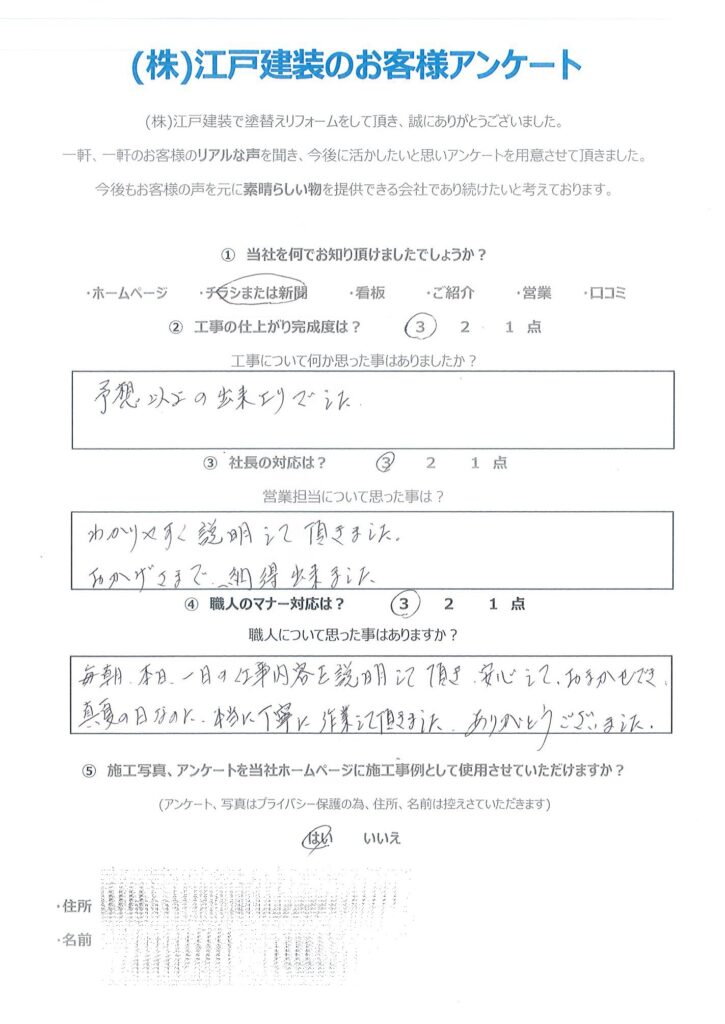 (株)江戸建装のお客様アンケート
(株)江戸建装で塗替えリフォームをして頂き、誠にありがとうございました。
一軒、一軒のお客様のリアルな声を聞き、今後に活かしたいと思いアンケートを用意させて頂きました。
今後もお客様の声を元に素晴らしい物を提供できる会社であり続けたいと考えております。
① 当社を何でお知り頂けましたでしょうか？
・ホームページ ・チラシまたは新聞 ・看板 ・ご紹介 ・営業 ・口コミ
② 工事の仕上がり完成度は？ 3 2 1 点
工事について何か思った事はありましたか？
予想以上の出来上りでした.
③ 社長の対応は？ 3 2 1 点
営業担当について思った事は？
わかりやすく説明して頂きました.
おかげさまで、納得出来ました
④ 職人のマナー対応は？ 3 2 1 点
職人について思った事はありますか？
毎朝、本日、一日の仕事内容を説明して頂き、安心して、おまかせでき、
真夏の日なのに、本当に丁寧に作業して頂きました、ありがとうございました.
⑤ 施工写真、アンケートを当社ホームページに施工事例として使用させていただけますか？
(アンケート、写真はプライバシー保護の為、住所、名前は控えさていただきます)
はい いいえ
・住所
・名前